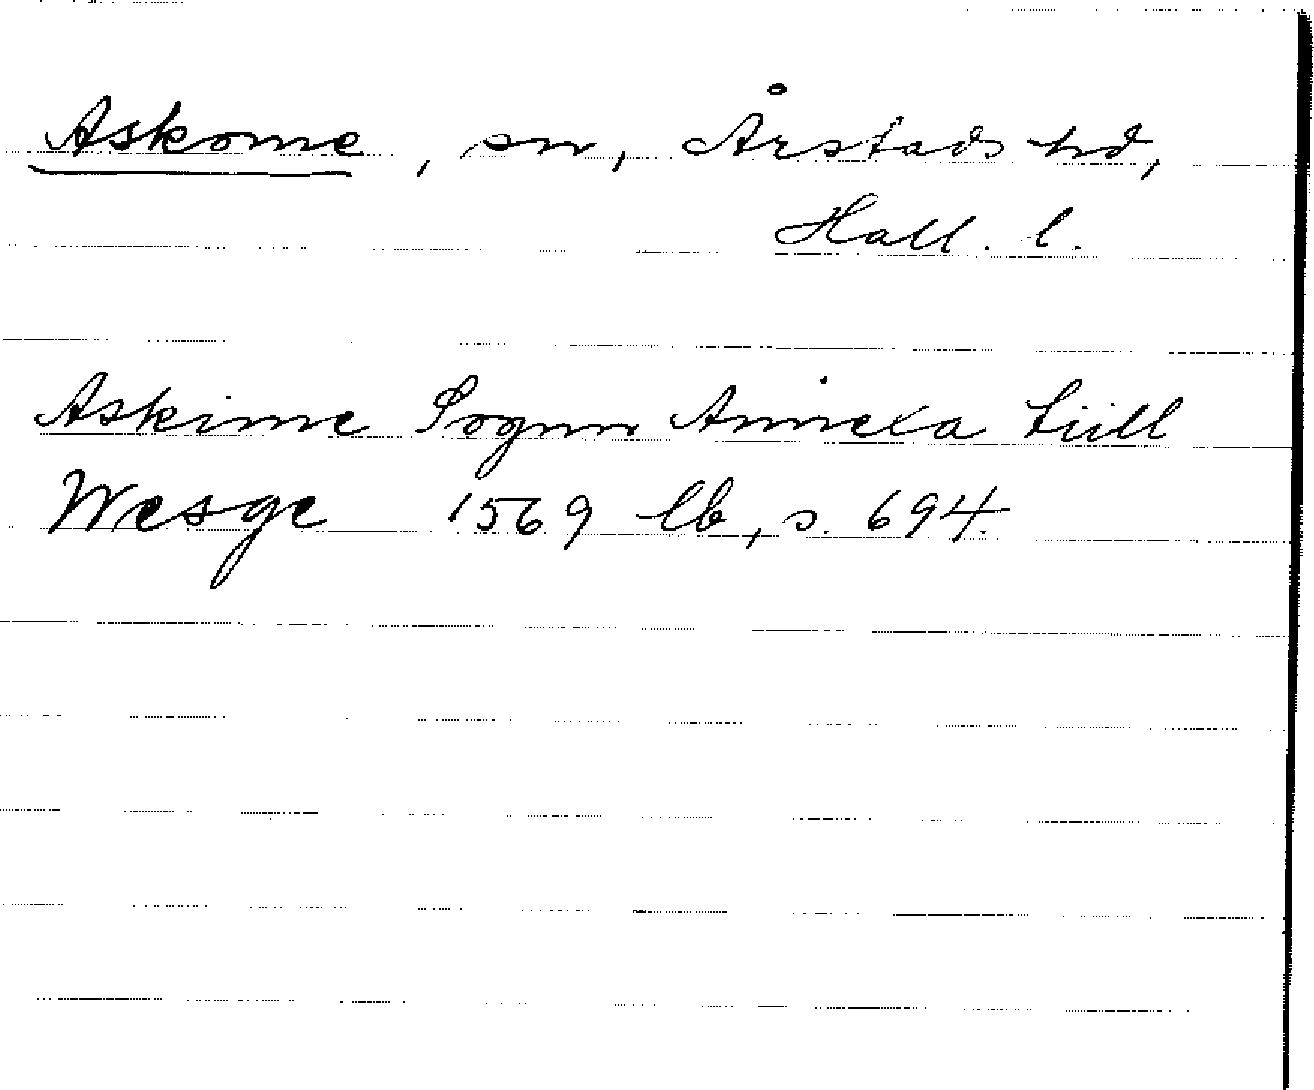 Askome, sn, Årstads hd,
Hall. l.
Askime Sognn Annexa tiill
Wesge 1569 lb, s. 694.